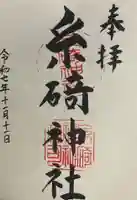 奉拝
糸碕神社
令和七年十一月十一日